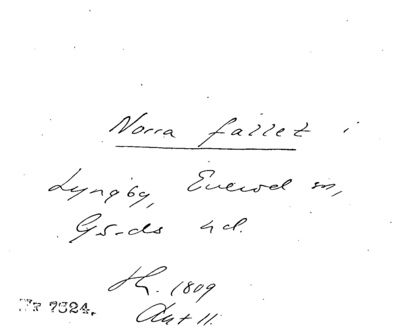 Norra fallet i
Lyngby, Everöd sn,
Gärds hd.
Sk. 1809
Akt 11.
Nr 7324.